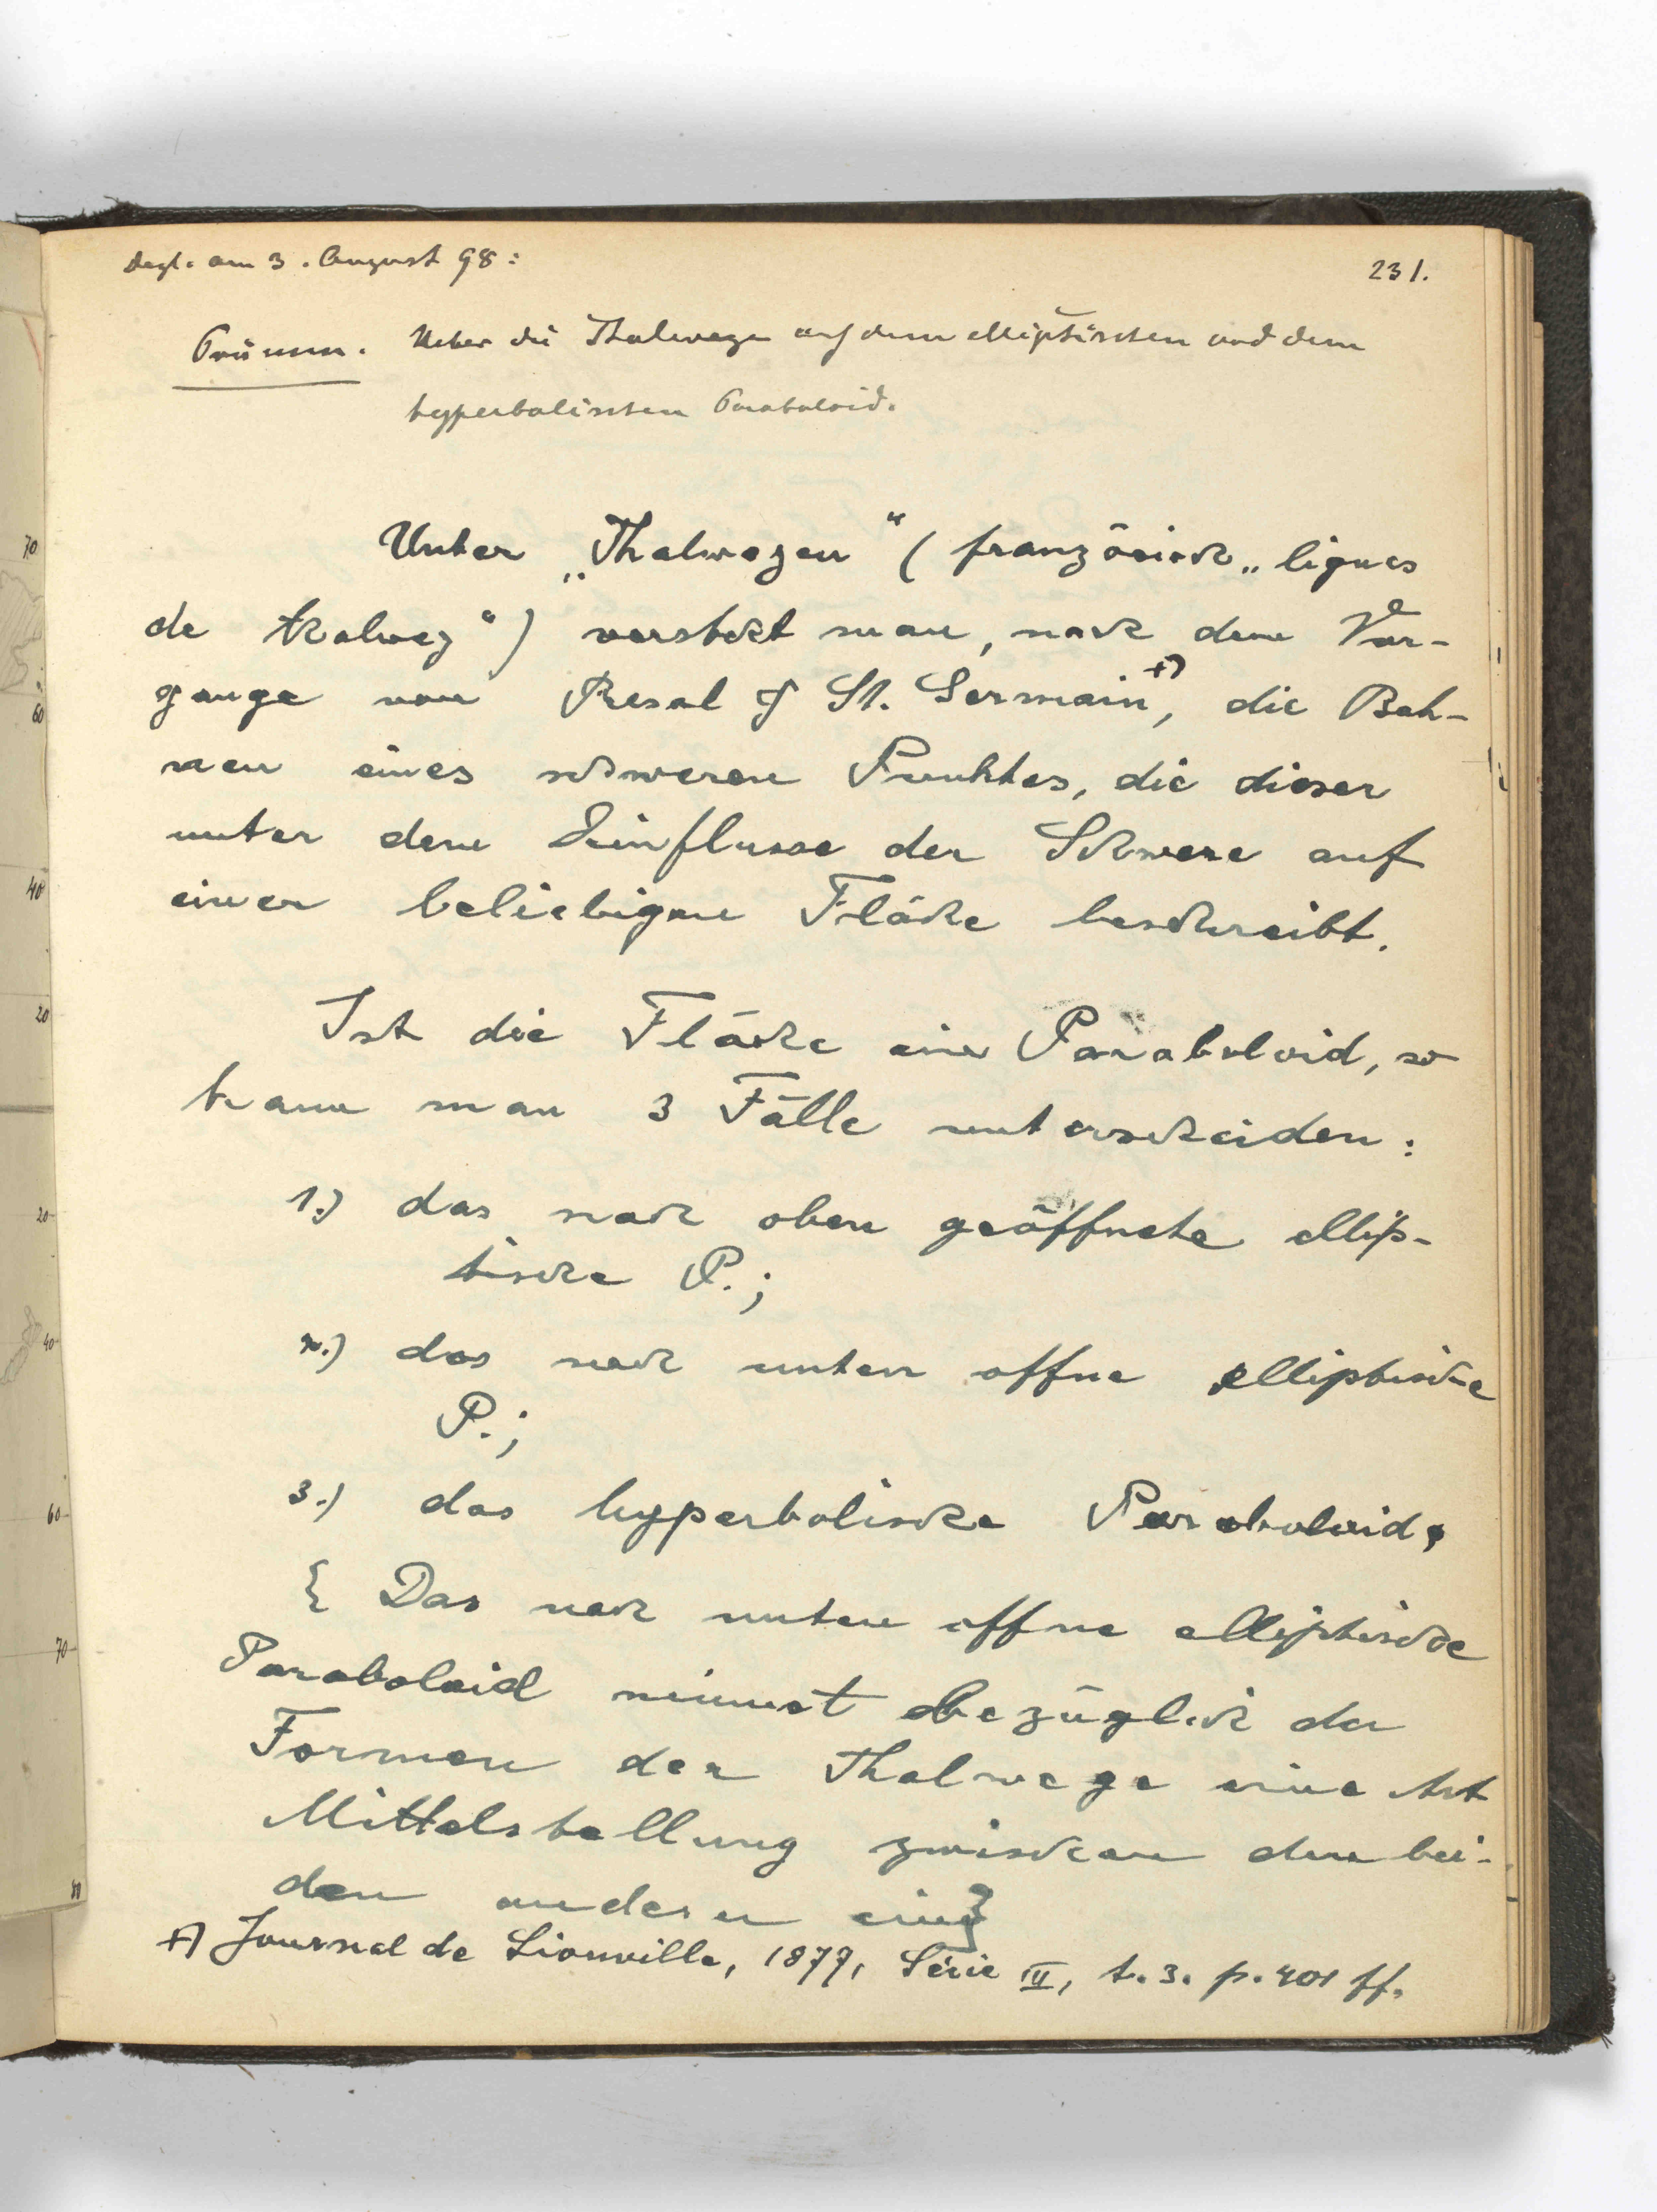 Desgl. am 3. August 98:
231.
Ueber die Thalwege auf dem elliptischen und dem
hyperbolischen Paraboloid.
Unter „Thalwegen“ (französisch „lignes
de thalweg“) versteht man, nach dem Vor-
gange von Resal & St. Germain +), die Bah-
nen eines schweren Punktes, die dieser
unter dem Einflusse der Schwere auf
einer beliebigen Fläche beschreibt.
Ist die Fläche ein Paraboloid, so
kann man 3 Fälle unterscheiden:
1.) das nach oben geöffnete ellip-
tische P.;
2.) das nach unten offne elliptische
P.;
3.) das hyperbolische Paraboloid.
{ Das nach unten offne elliptische
Paraboloid nimmt bezüglich der
Formen der Thalwege eine Art
Mittelstellung zwischen den bei-
den andern ein}
+) Journal de Liouville, 1877, Série III, t. 3. p. 401 ff.
70
60
40
20
20
40
60
70
80